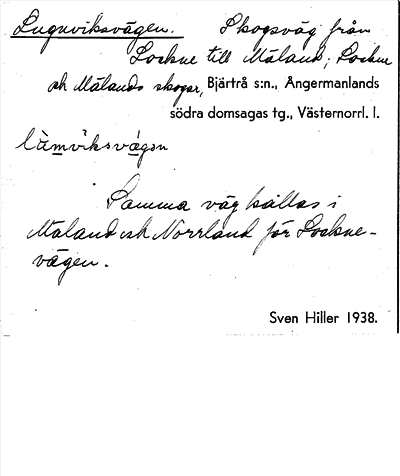 Lugnviksvägen. Skogsväg från
Lockne till Mäland; Lockne
och Mälands skogar, Bjärtrå s:n., Ångermanlands
södra domsagas tg., Västernorrl. l.
Samma väg kallas i
Mäland och Norrland för Lockne-
vägen.
Sven Hiller 1938.